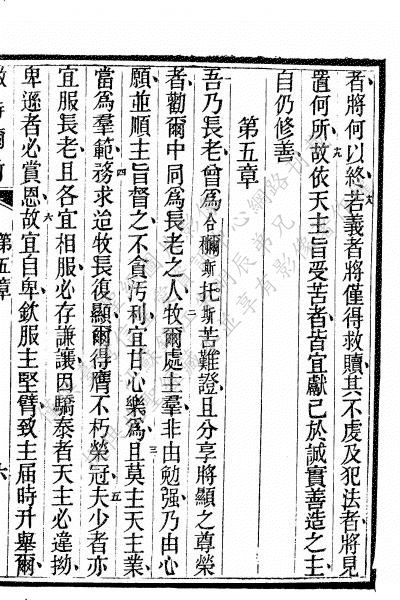 者將何以終若義者將僅得救贖其不虔及犯法者將見
置何所故依天主旨受苦者皆宜獻己於誠實善造之主
自仍修善
第五章
吾乃長老曾爲合彌斯托斯苦難證且分享將顯之尊榮
者勸爾中同爲長老之人牧爾處主羣非由勉强乃由心
願並順主旨督之不貪污利宜甘心樂爲且莫主天主業
當爲羣範務求迨牧長復顯爾得膺不朽榮冠夫少者亦
宜服長老且各宜相服必存謙讓因驕泰者天主必違拗
卑遜者必賞恩故宜自卑欽服主堅臂致主屆時升舉爾
第五章
六